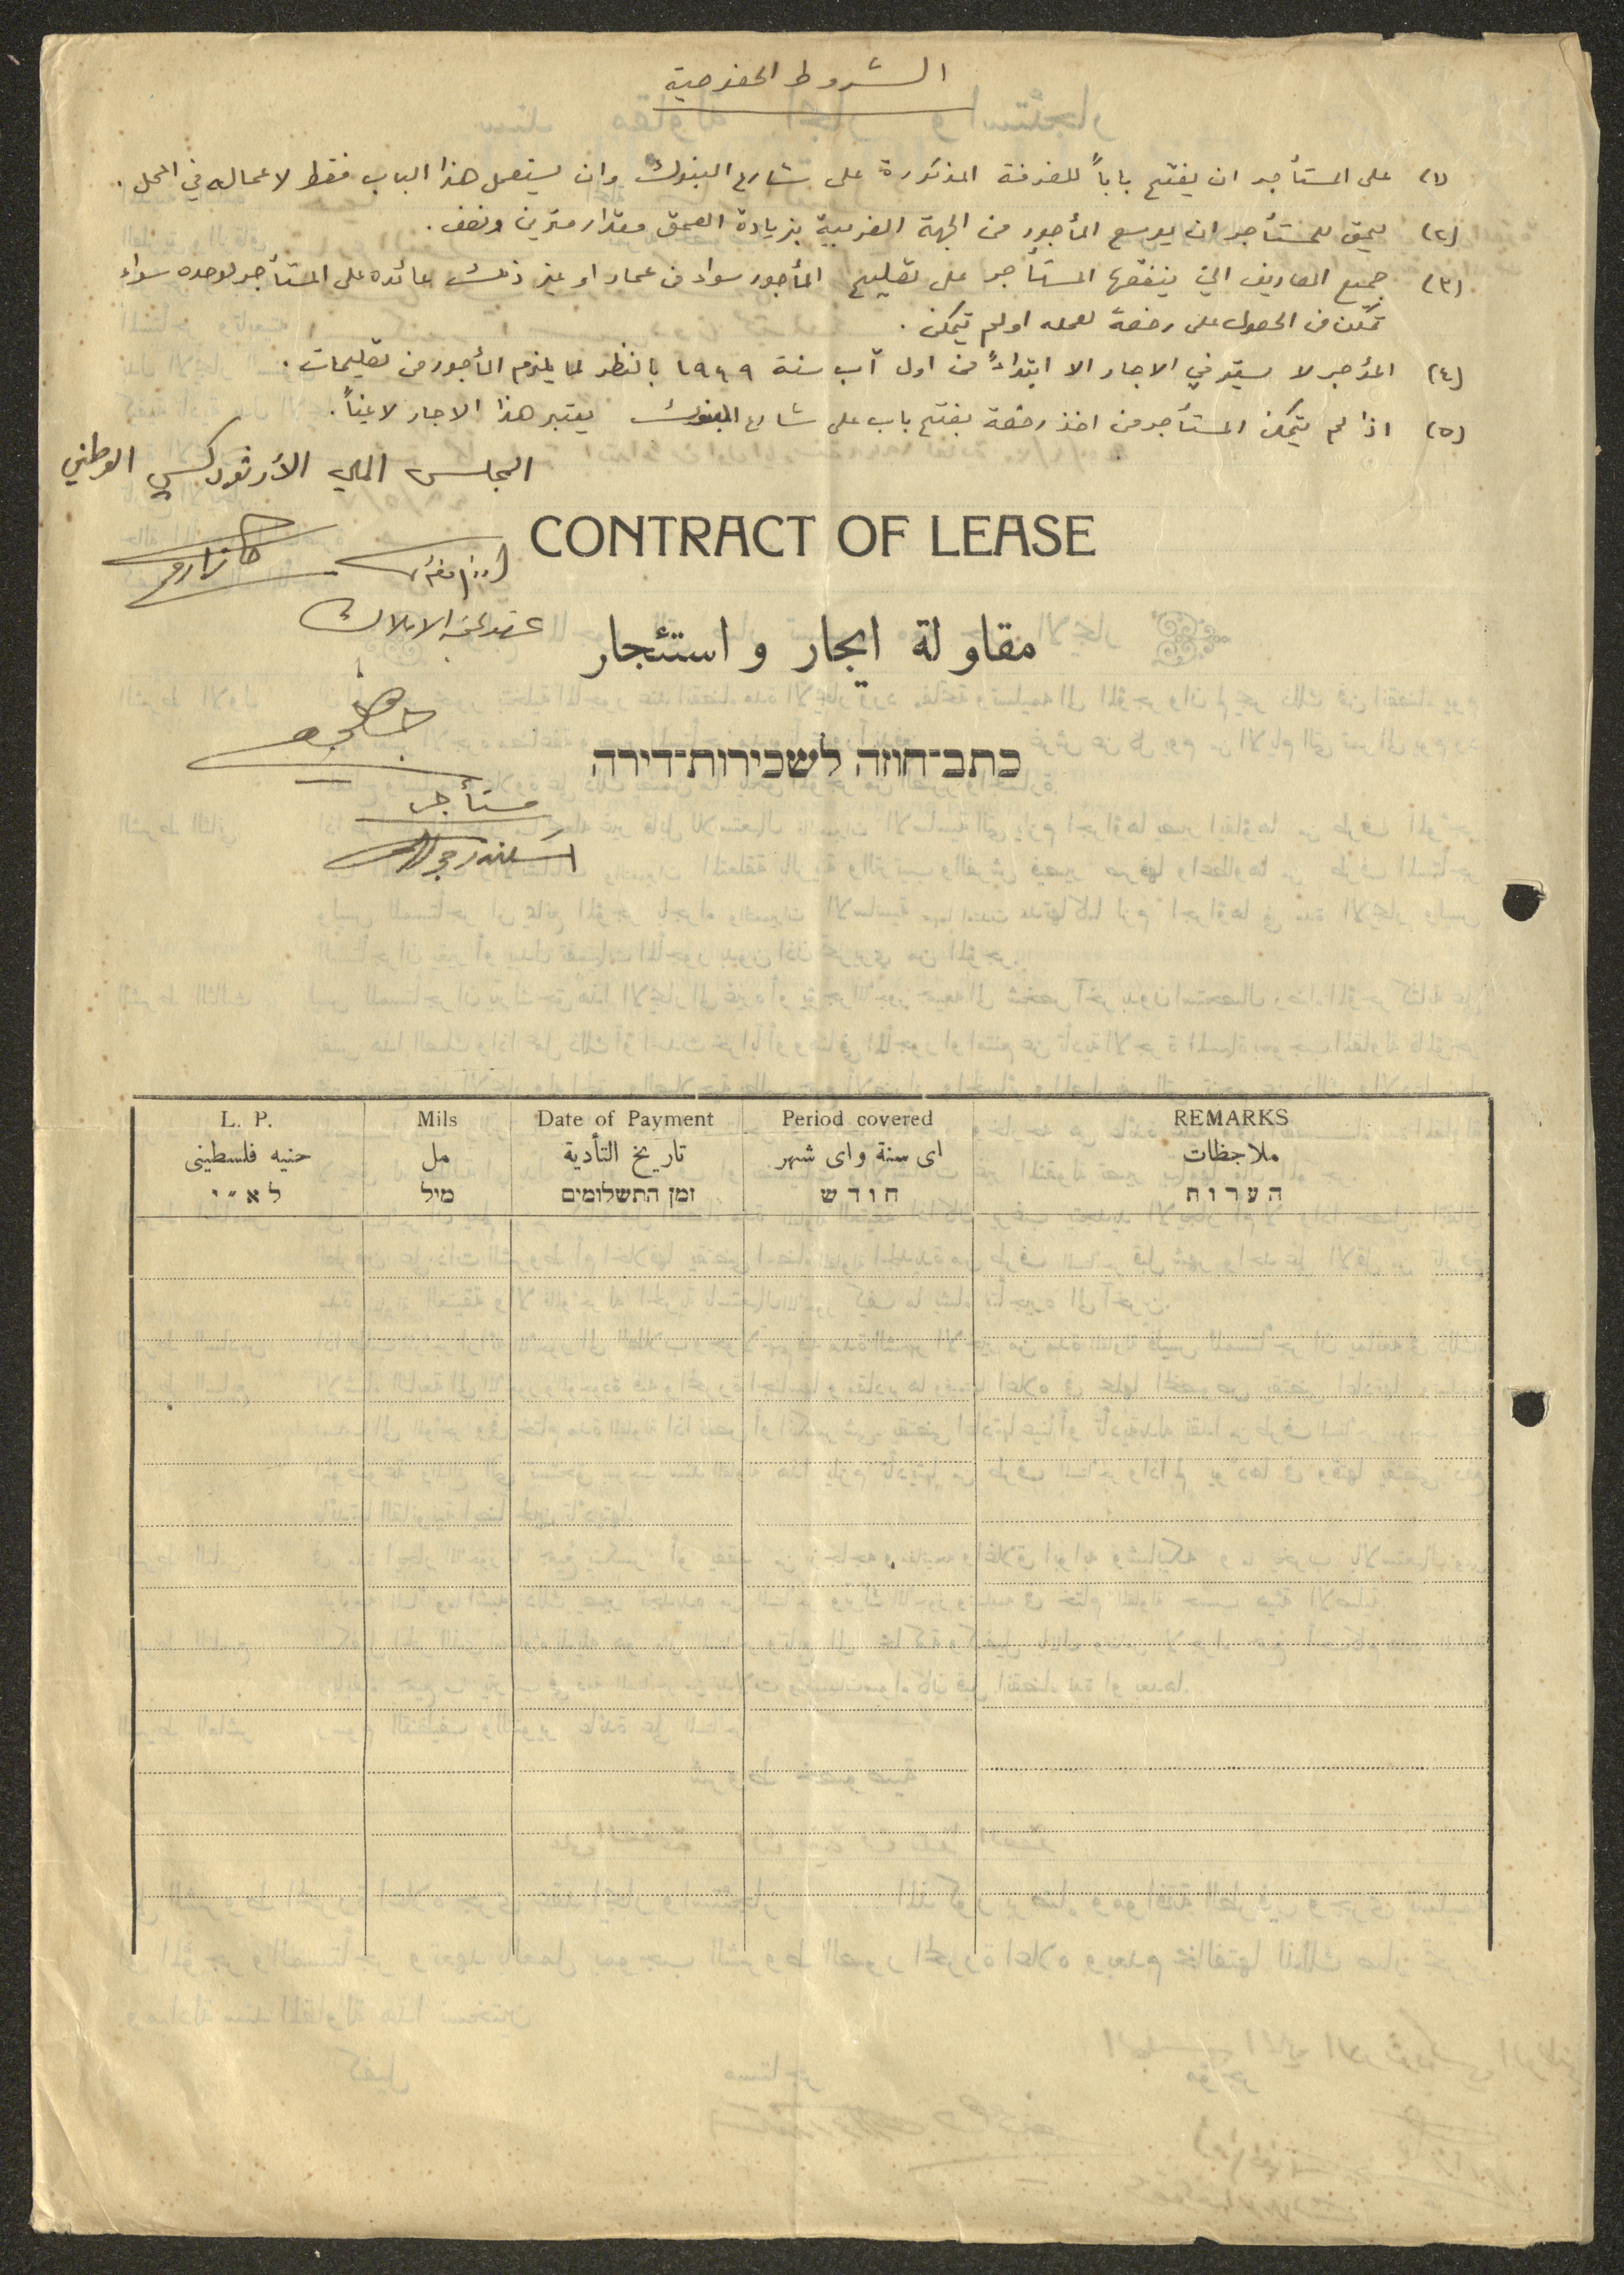 الشروط الخصوصية
(١) على المستأجر ان يفتح باباً للغرفة المذكورة على شارع البنوك وان يستعمل هذا الباب فقط لاعماله في المحل.
(٢) يحق للمستأجر ان يوسع المأجور من الجهة الغربية بزيادة العمق مقدار مترين ونصف.
(٣) جميع المصاريف التي ينفقها المستأجر على تصليح المأجور سواء من عمار او غير ذلك عائده على المستأجر لوحده سواء
تمكن من الحصول على رخصة لعمله او لم يتمكن.
(٤) المؤجر لا يستوفي الاجار الا ابتداءً من اول آب سنة ١٩٤٩ بالنظر لما يلزم المأجور من تصليحات.
(٥) اذا لم يتمكن المستأجر من اخذ رخصة بفتح باب على شارع البنوك يعتبر هذا الاجار لاغياً.
المجلس الملي الأرثوذكسي الوطني
CONTRACT OF LEASE
الاملاك
مقاولة ايجار واستئجار
כתב־חוזה לשכירות־דירה
مستأجر
اسكندر
L. P. Mils Date of Payment Period covered REMARKS
جنيه فلسطينى مل تاريخ التأدية اى سنة واى شهر ملاحظات
לא״י מיל זמן התשלומים חודש הערות